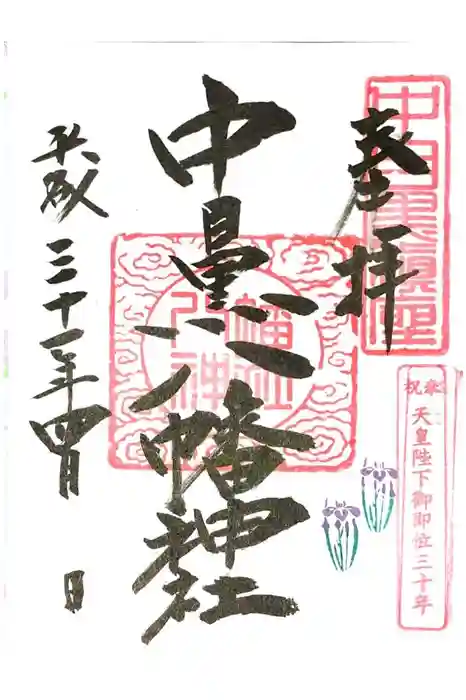 中目黒鎮座
奉拝
奉祝 天皇陛下御即位三十年
中目黒八幡神社
八幡神社
平成三十一年四月 日